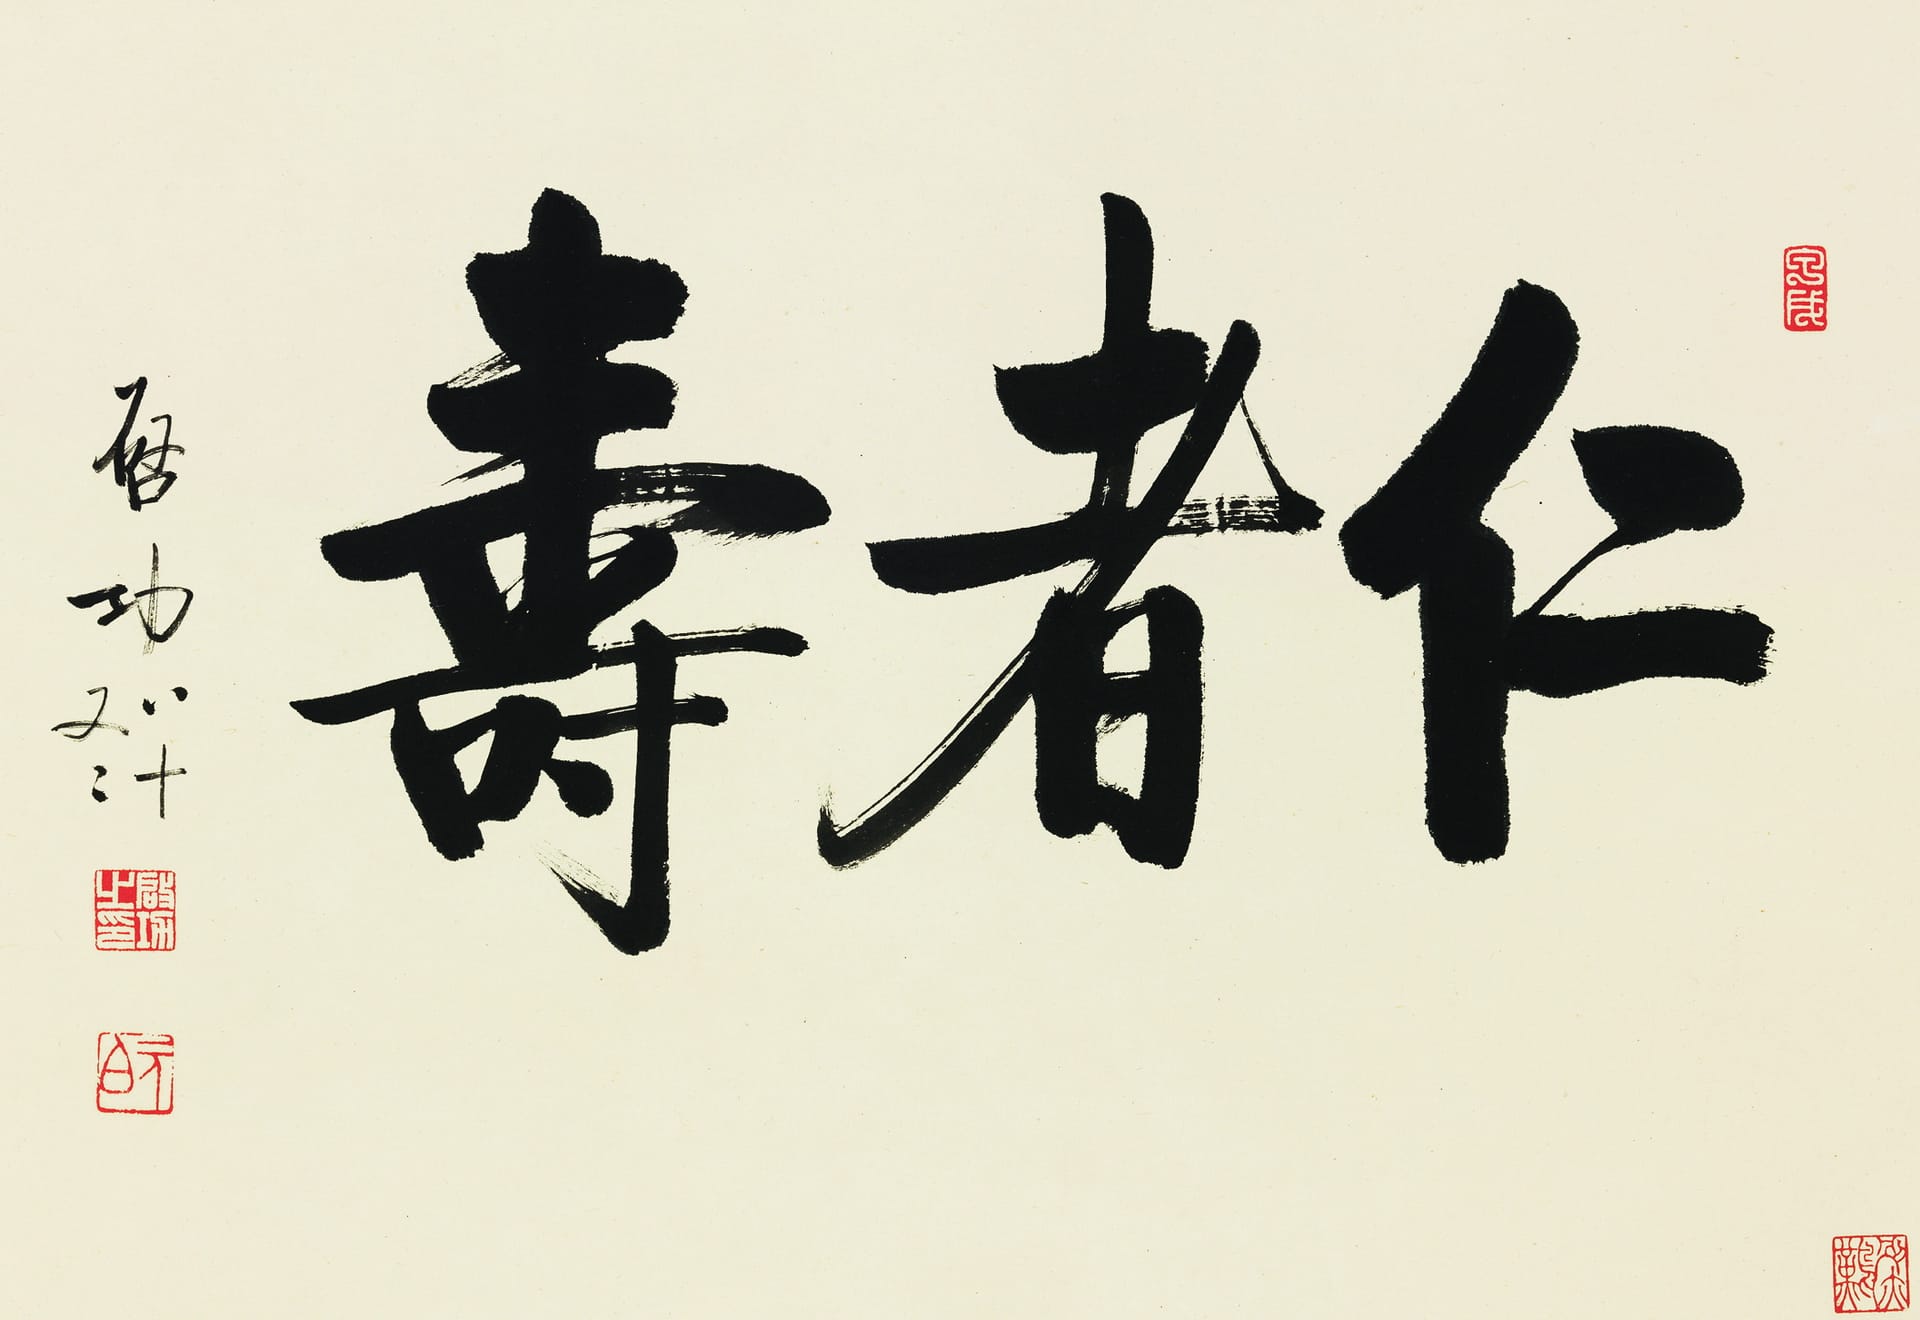 仁者壽
启功
八十
又二
啟功
之印
元白